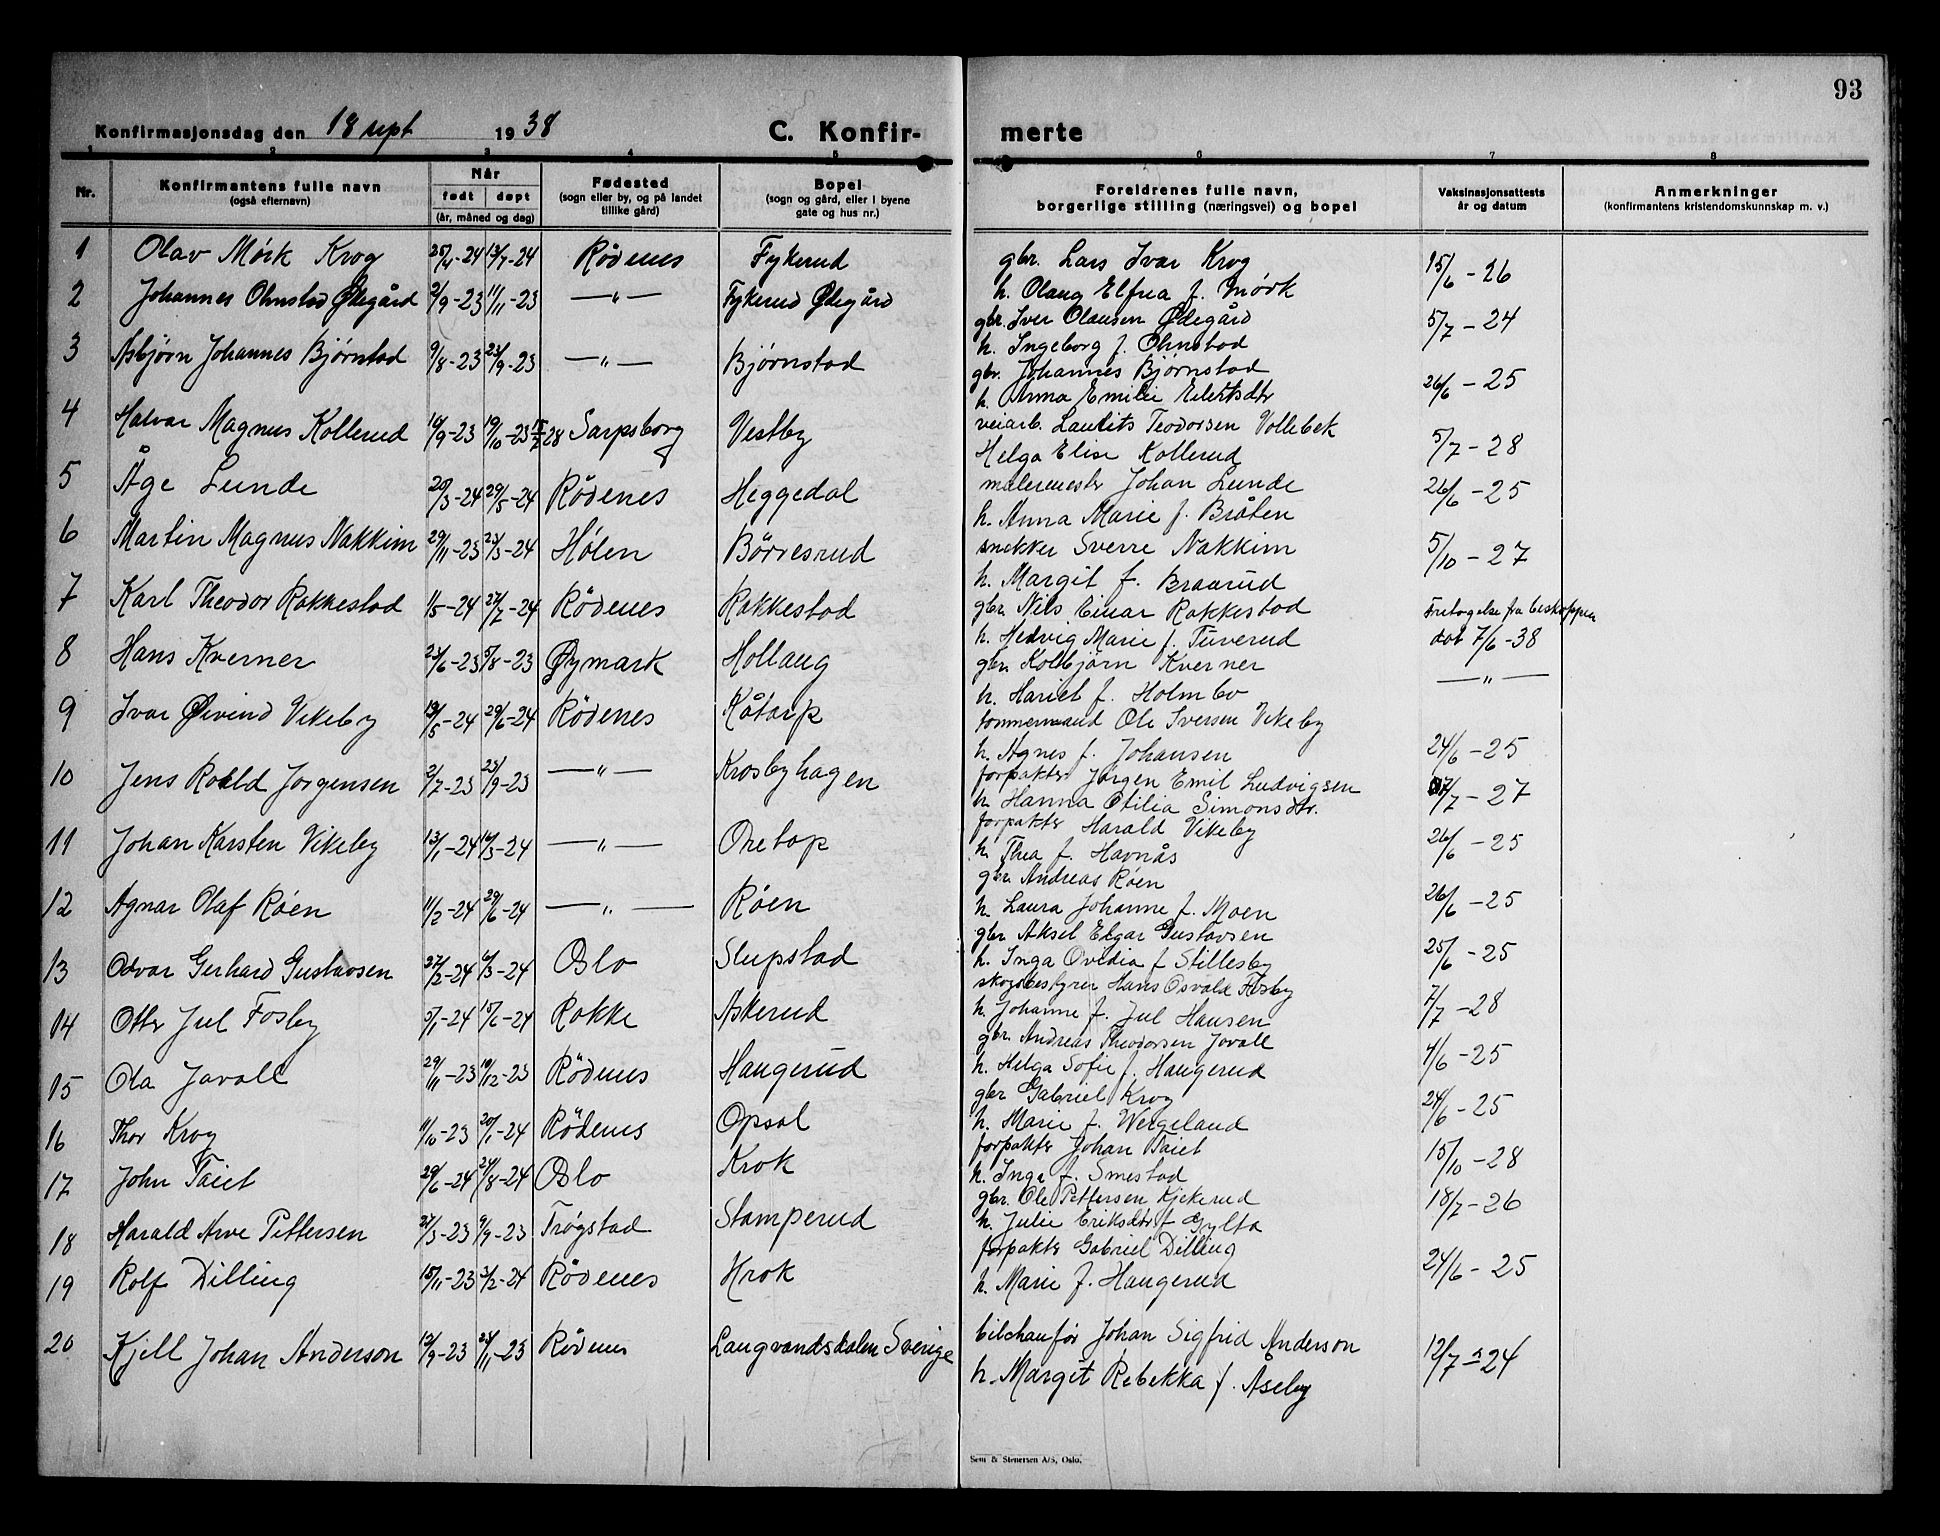 93
Konfirmasjonsdag den 18 sept 1938 C. Konfir- merte
1 2 3 4 5 6 7 8
Nr. Konfirmantens fulle navn (også efternavn) Når født døpt (år, måned og dag) Fødested (sogn eller by, og på landet tillike gård) Bopel (sogn og gård, eller i byene gate og hus nr.) Foreldrenes fulle navn, borgerlige stilling (næringsvei) og bopel Vaksinasjonsattests år og datum Anmerkninger (konfirmantens kristendomskunnskap m. v.)
1 Olav Mörk Krog 25/4-24 13/7-24 Rödenes Fykerud gbr. Lars Ivar Krog 15/6-26
h. Olaug Elfria f. Mörk
2 Johannes Ohnstad Ødegård 2/9-23 11/11-23 —"— Fykerud Ødegård gbr. Iver Olausen Ødegård 5/7-24
h. Ingeborg f. Ohnstad
3 Asbjörn Johannes Björnstad 9/8-23 23/9-23 —"— Björnstad gbr. Johannes Björnstad 26/6-25
h. Anna Emilie
4 Halvar Magnus Kollerud 18/9-23 19/10-23 Sarpsborg Vestby veiarb. Laurits Teodorsen Vollebek 5/7-28
Helga Elise Kollerud
5 Åge Lunde 20/3-24 29/5-24 Rödenes Heggedal malermester Johan Lunde 26/6-25
h. Anna Marie f. Bråten
6 Martin Magnus Nakkim 29/11-23 23/3-24 Hölen Börresrud snekker Sverre Nakkim 5/10-27
h. Margit f. Braarud
7 Karl Theodor Rakkestad 1/5-24 27/7-24 Rödenes Rakkestad gbr. Nils Einar Rakkestad Fritagelse fra biskoppen
h. Hedvig Marie f. Tuverud dat 7/6-38
8 Hans Kverner 23/6-23 5/8-23 Øymark Hollaug gbr. Kolbjörn Kverner —"—
h. Hariet f. Holmbo
9 Ivar Øivind Vikeby 13/5-24 29/6-24 Rödenes Kåtorp tömmermand Ole Iversen Vikeby 24/6-25
h. Agnes f. Johansen
10 Jens Roald Jörgensen 2/7-23 23/9-23 —"— Krosbyhagen forpakter Jörgen Emil Ludvigsen 17/7-27
h Hanna Otilia Simonsdtr.
11 Johan Karsten Vikeby 13/1-24 16/3-24 —"— Oretop forpakter Harald Vikeby 26/6-25
h. Thea f. Havnås
12 Agnar Olaf Röen 11/2-24 29/6-24 —"— Röen gbr. Andreas Röen 26/6-25
h. Laura Johanne f. Moen
13 Odvar Gerhard Gustavsen 27/2-24 6/3-24 Oslo Slupstad gbr Aksel Elgar Gustavsen 25/6-25
h. Inga Ovidia f Stillesby
14 Otto Jul Fosby 5/1-24 15/6-24 Rokke Askerud skogbestyrer Hans Osvald Fosby 7/7-28
h Johanne f. Jul Hansen
15 Ola Javall 29/11-23 19/12-23 Rödenes Haugerud gbr. Andreas Theodorsen Javall 4/6-25
h. Helga Sofie f. Haugerud
16 Thor Krog 11/10-23 20/1-24 Rödenes Opsal gbr Gabriel Krog 24/6-25
h. Marie f. Weigeland
17 John Taiet 29/6-24 24/8-24 Oslo Krok forpakter Johan Taiet 15/10-28
h. Inga f. Smestad
18 Harald Arve Pettersen 27/3-23 9/9-23 Trögstad Stamperud gbr. Ole Pettersen Kjekerud 18/7-26
h. Julie Eriksdtr f Gylta
19 Rolf Dilling 15/11-23 3/2-24 Rödenes Krok forpakter Gabriel Dilling 24/6-25
h. Marie f. Haugerud
20 Kjell Johan Anderson 12/9-23 25/11-23 Rödenes Langvandsdalen Sverige bilchauför Johan Sigfrid Anderson 12/7-24
h. Margit Rebekka f. Åseby
Sem & Stenersen A/S, Oslo.